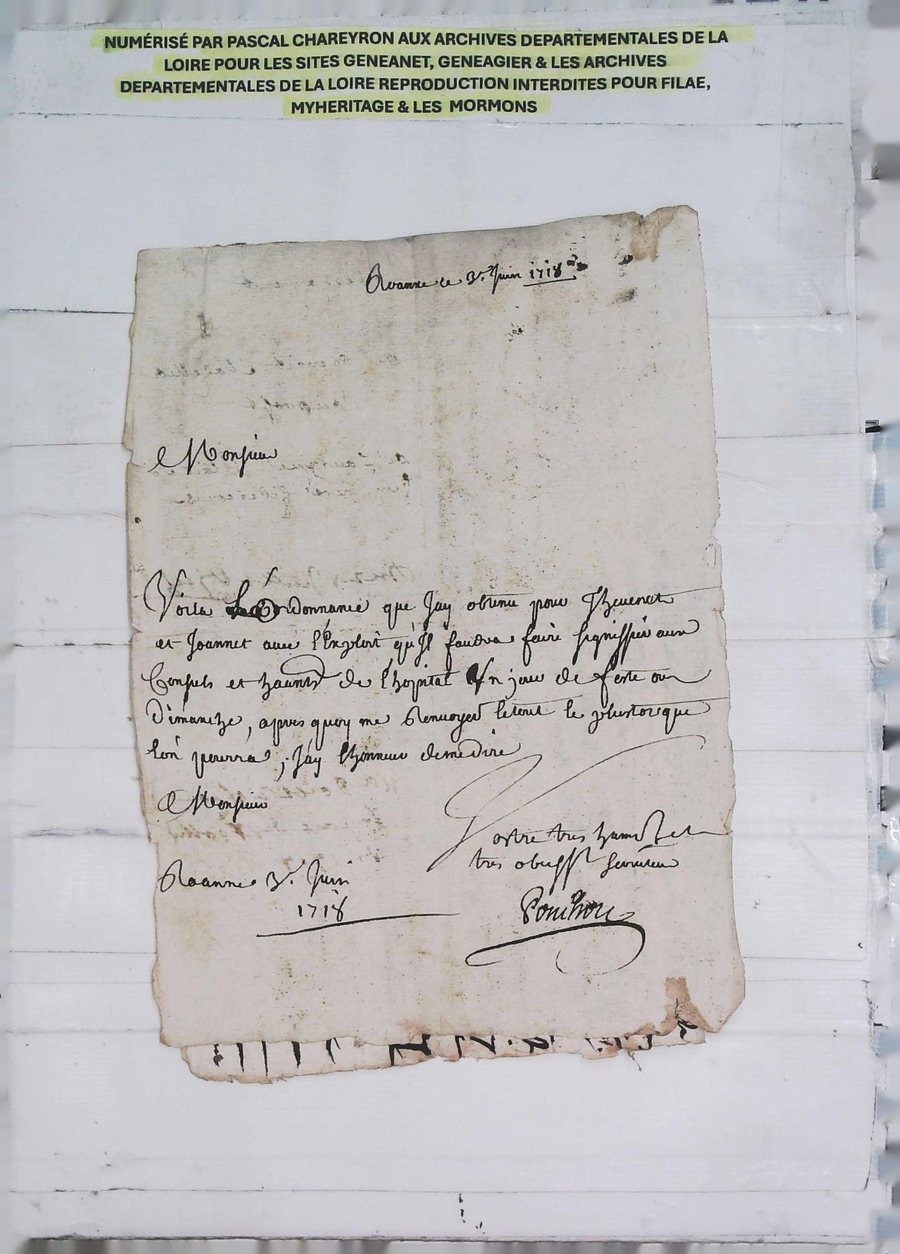 NUMÉRISÉ PAR PASCAL CHAREYRON AUX ARCHIVES DEPARTEMENTALES DE LA
LOIRE POUR LES SITES GENEANET, GENEAGIER & LES ARCHIVES
DEPARTEMENTALES DE LA LOIRE REPRODUCTION INTERDITES POUR FILAE,
MYHERITAGE & LES MORMONS
Roanne le 3e. Juin 1718
Monsieur
Voila Lordonnance que Jay obtenu pour Thevenet
et Joannet avec l'Exploit qu'Il faudra faire signiffier aux
Consuls et habnts de l'hopital Un jour de feste ou
Dimanche, apres quoy me Renvoyer letout le plustot que
lon pourra, Jay lhonneur demedire
Monsieur
Vostre tres humble et
tres obeisst serviteur
Roanne 3e. Juin
1718